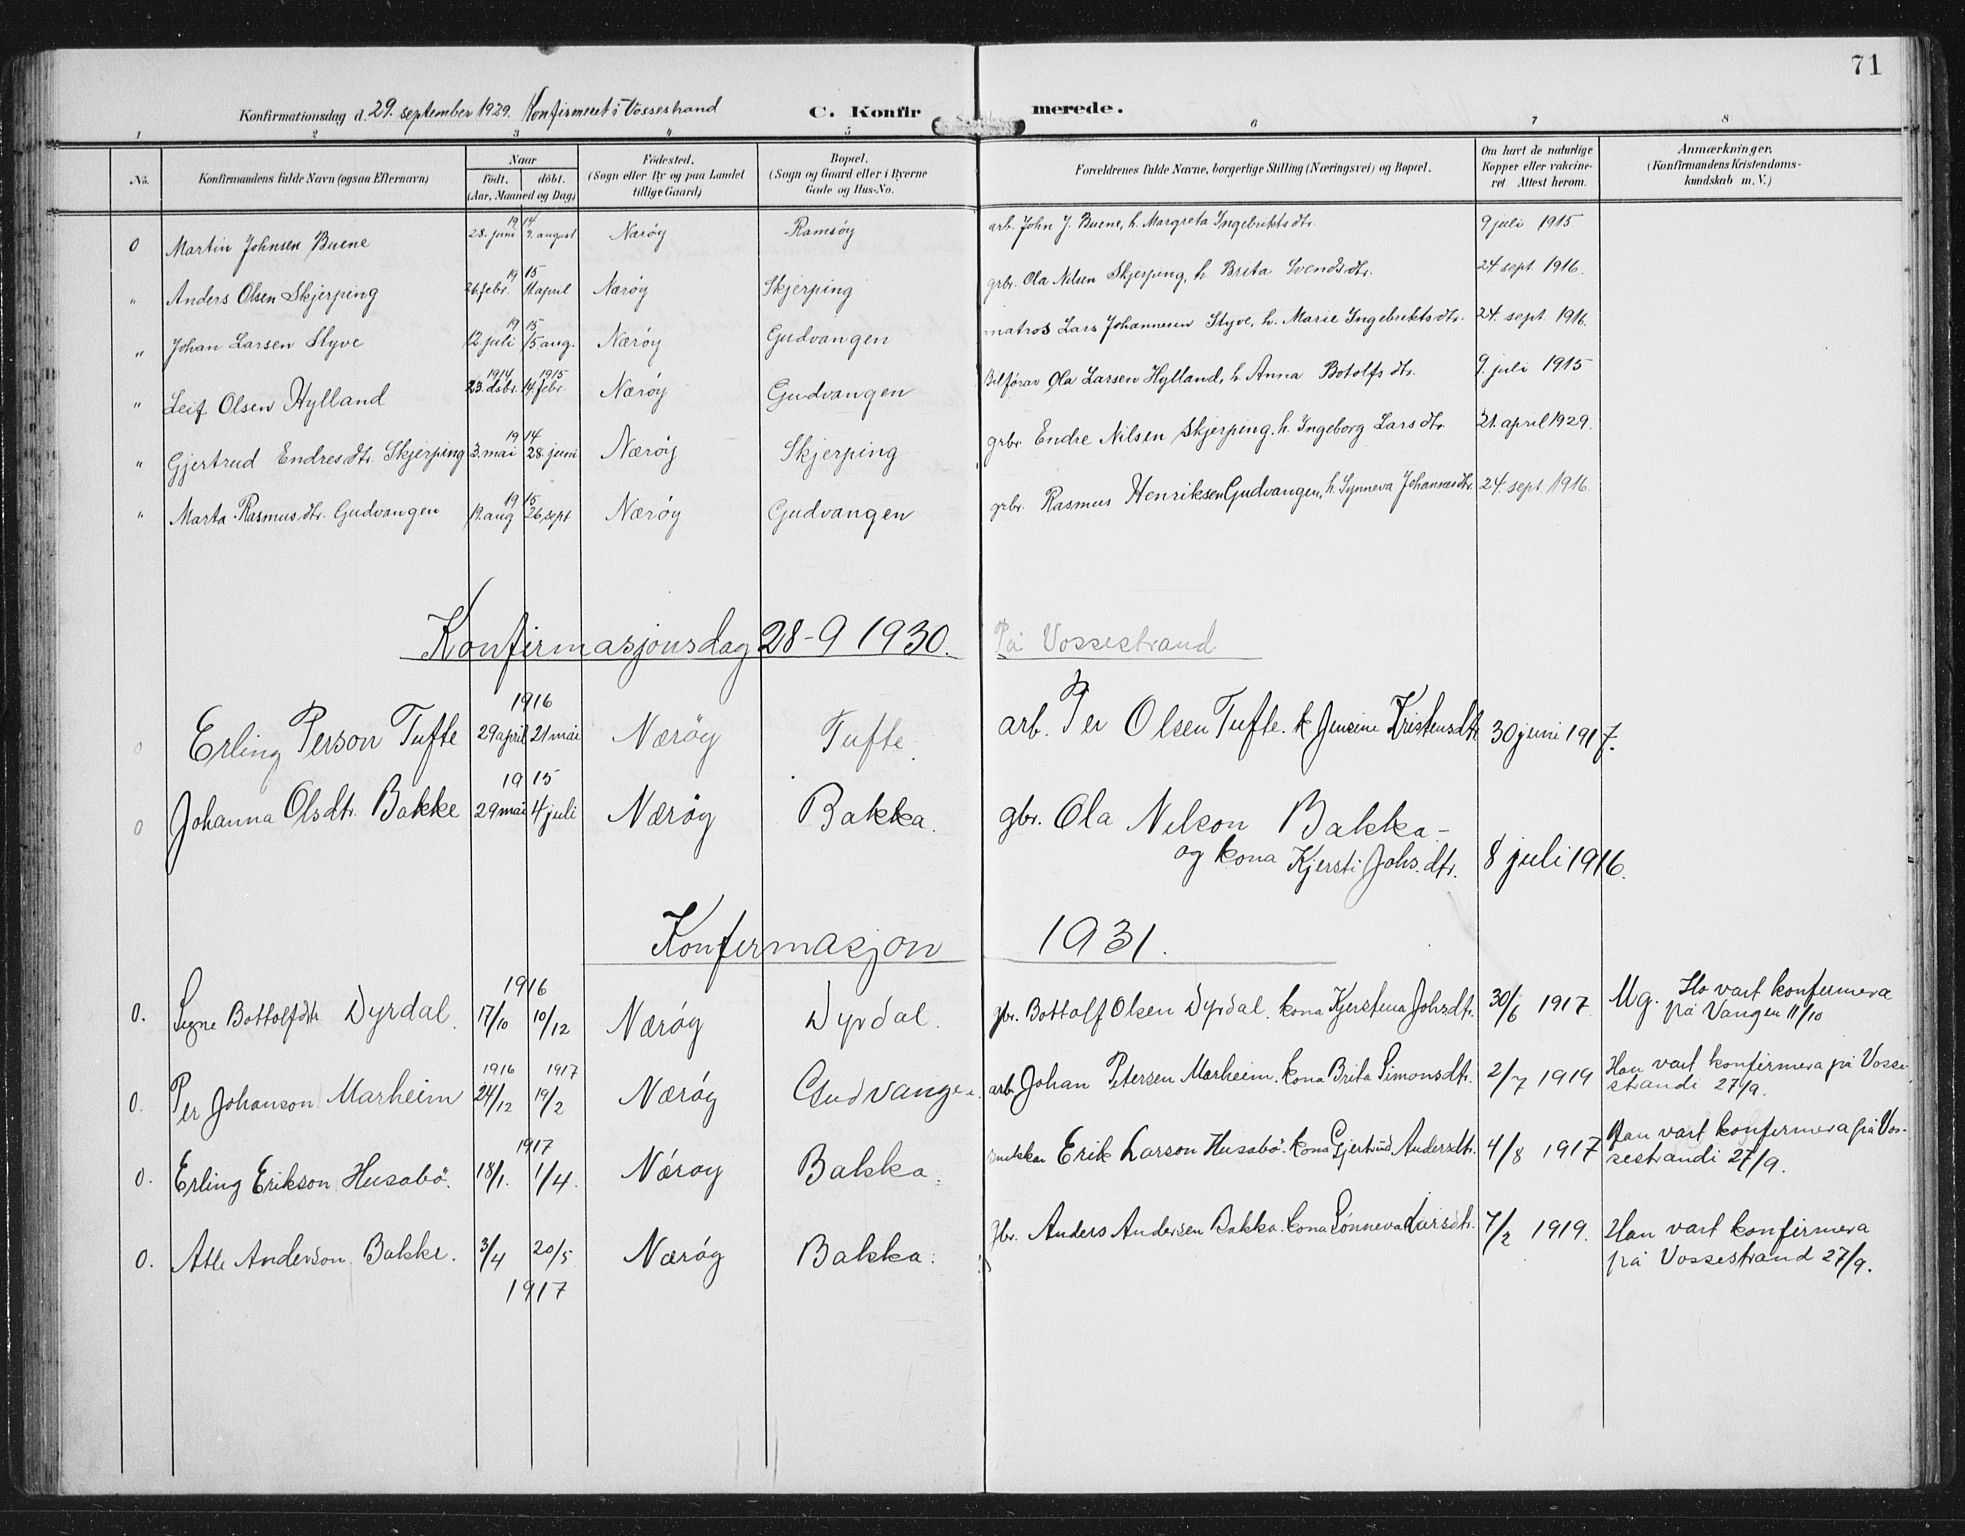 71
Konfirmationsdag d. 29. september 1929. Konfirmert i Vossestrand C. Konfirmerede.
1 2 3 4 5 6 7 8
No. Konfirmandens fulde Navn (ogsaa Efternavn) Naar født. døbt. (Aar, Maaned og Dag) Fødested. (Sogn eller By og paa Landet tillige Gaard) Bopæl. (Sogn og Gaard eller i Byerne Gade og Hus-No. Forældrenes fulde Navne, borgerlige Stilling (Næringsvei) og Bopæl. Om havt de naturlige Kopper eller vakcineret. Attest herom. Anmærkninger. (Konfirmandens Kristendomskundskab m. V.)
0 Martin Johnsen Buene 1914 28. juni 9. august Nærøy Ramsøy arb. John J. Buene, h. Margreta Ingebriktsdtr. 9 juli 1915
" Anders Olsen Skjerping 1915 26 febr. 11 april Nærøy Skjerping grbr. Ola Nilsen Skjerping, h. Brita Svendsdtr. 24 sept. 1916.
" Johan Larsen Styve 1915 12. juli 15 aug. Nærøy Gudvangen matros Lars Johannesen Styve, h. Marie Ingebriktsdtr. 24. sept. 1916
" Leif Olsen Hylland 1914 1915 23. dsbr. 14 febr. Nærøy Gudvangen Bilførar Ola Larsen Hylland, h. Anna Botolfsdtr. 9. juli 1915
" Gjertrud Endresdtr. Skjerping 1914 3. mai 28. juni Nærøy Skjerping grbr. Endre Nilsen Skjerping, h. Ingeborg Larsdtr. 21. april 1929.
" Marta Rasmusdtr. Gudvangen 1915 19. aug 26 sept Nærøy Gudvangen grbr. Rasmus Henriksen Gudvangen, h. Synneva Johannesdtr. 24. sept. 1916.
Konfirmasjonsdag 28-9 1930. På Vossestrand
1916
0 Erling Person Tufte 29 april 21 mai Nærøy Tufte. arb. Per Olsen Tufte. k Jensine Kristensdtr 30 juni 1917.
1915
0 Johanna Olsdtr. Bakke 29 mai 4 juli Nærøy Bakka. gbr. Ola Nilson Bakka-
og kona Kjersti Johs.dtr. 8 juli 1916.
Konfirmasjon 1931.
1916
0. Signe Bottolfdtr Dyrdal. 17/10 10/12 Nærøy Dyrdal. gbr. Bottolf Olsen Dyrdal. kona Kjerstena Johsdtr. 30/6 1917 Mg. Ho vart konfirmera
på Vangen 11/10
1916 1917
0. Per Johanson Marheim 24/12 19/2 Nærøy Gudvangen. arb. Johan Petersen Marheim. kona Brita Simonsdtr. 2/7 1919 Han vart konfirmera på Vosse-
strandi 27/9.
1917
0. Erling Erikson Husabö. 18/1. 1/4. Nærøy Bakka. Erik Larson Husabö. kona Gjertrud Andersdtr. 4/8 1917 Han vart konfirmera på Vos-
sestrandi 27/9.
0. Atle Anderson Bakke. 3/4 20/5 Nærøy Bakka. gbr. Anders Andersen Bakka. kona Sønneva Larsdtr. 7/2 1919. Han vart konfirmera
på Vossestrand 27/9.
1917